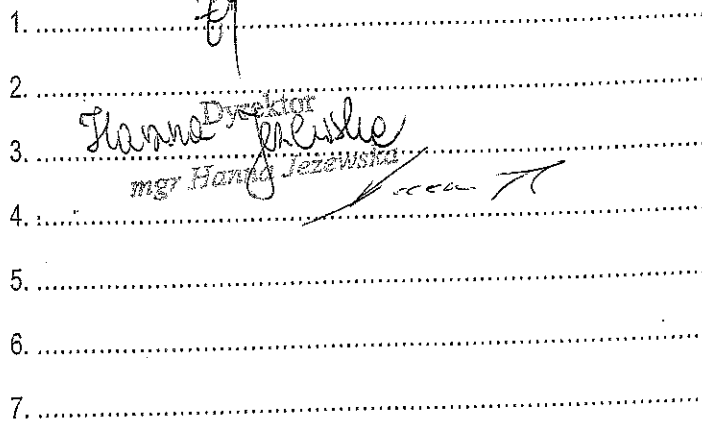 1.
2.
Dyrektor
3. Hanna Jeżewska
mgr Hanna Jeżewska
4.
5.
6.
7.